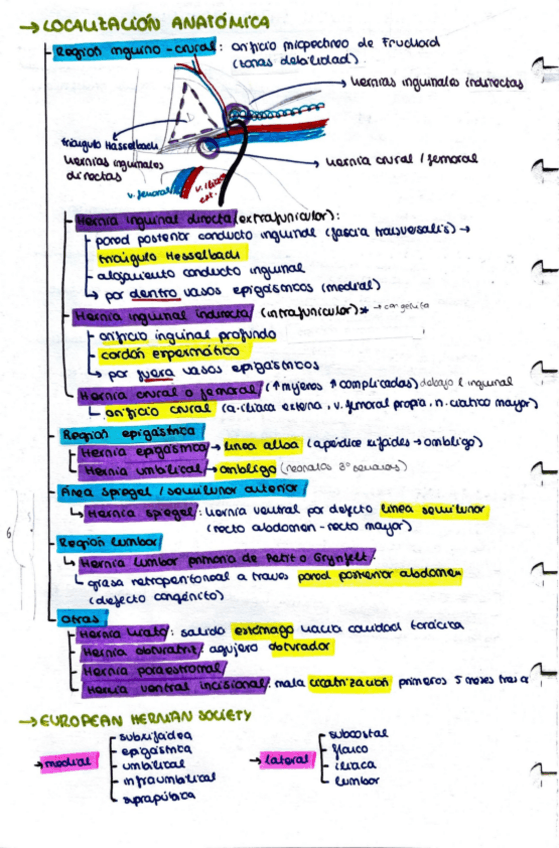 → LOCALIZACIÓN ANATÓMICA
Región inguino-crural: orificio miopectineo de Fruchard
(zonas debilidad).
hernias inguinales indirectas
triángulo Hasselbach
hernias inguinales
directas
hernia crural / femoral
v. femoral
ext.
Hernia inguinal directa (extrafunicular):
pared posterior conducto inguinal (fascia transversalis) →
triángulo Hesselbach
alojamiento conducto inguinal
↳ por dentro vasos epigástricos (medial)
Hernia inguinal indirecta (intrafunicular)* → congénita
orificio inguinal profundo
cordón espermático
↳ por fuera vasos epigástricos
Hernia crural o femoral (↑ mujeres ↑ complicadas) debajo l inguinal
orificio crural (a. iliaca externa, v. femoral propia, n. ciático mayor)
Región epigástrica
Hernia epigástrica → línea alba (apéndice xifoides → ombligo)
Hernia umbilical → ombligo (neonatos 3ª semanas)
Área spiegel / semilunar anterior
↳ Hernia spiegel: hernia ventral por defecto línea semilunar
(recto abdomen - recto mayor)
6
Región lumbar
↳ Hernia lumbar primaria de Petit o Grynfelt:
↳ grasa retroperitoneal a través pared posterior abdomen
(defecto congénito)
Otras
Hernia hiato: salida estómago hacia cavidad torácica
Hernia obturatriz: agujero obturador
Hernia paraestomal
Hernia ventral incisional: mala cicatrización primeros 5 meses tras a
→ EUROPEAN HERNIAN SOCIETY
→ medial
subxifoidea
epigástrica
umbilical
infraumbilical
suprapúbica
→ lateral
subcostal
flanco
iliaca
lumbar